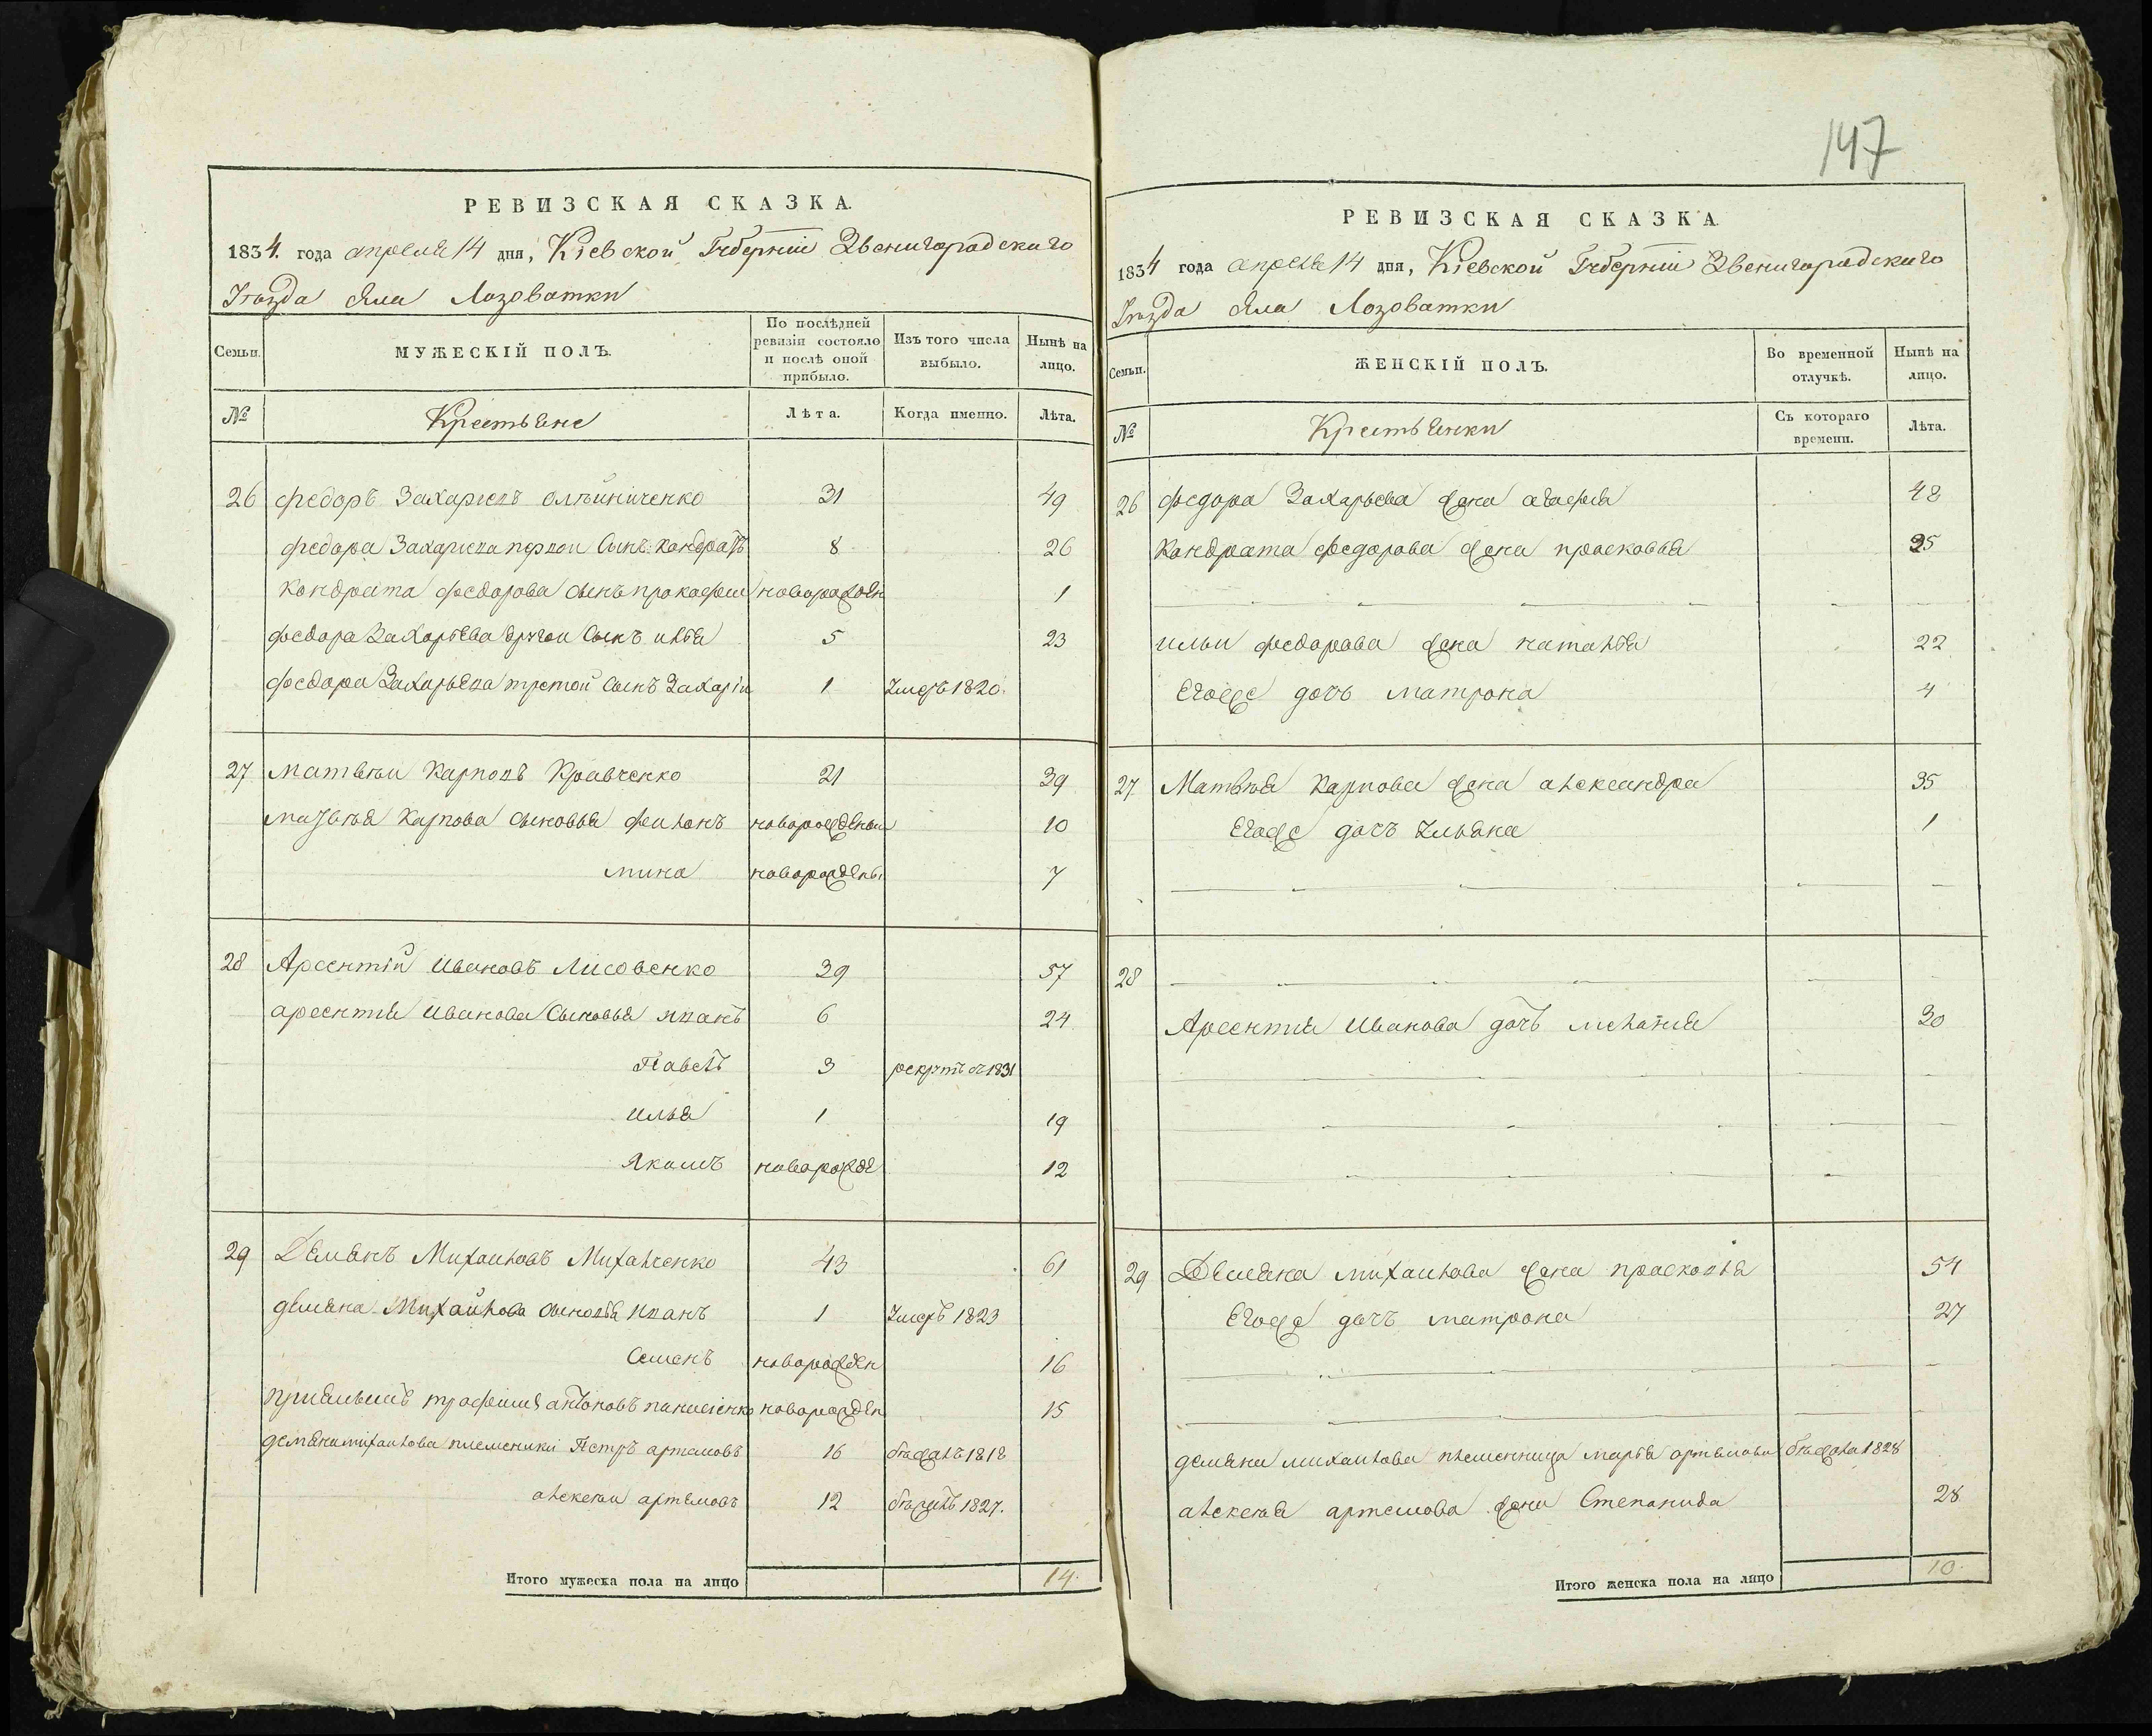 147
РЕВИЗСКАЯ СКАЗКА.
1834. года апреля 14 дня, Кіевской Губерніи Звенигорадскаго
Уезда села Лозоватки
Семьи.
МУЖЕСКІЙ ПОЛЪ.
По послѣдней ревизіи состояло и послѣ оной прибыло.
Изъ того числа выбыло.
Нынѣ на лицо.
№
Крестьяне
Лѣта.
Когда именно.
Лѣта.
26 федоръ Захариевъ Олѣйниченко 31 49
федора Захариева первои Сынъ Кондратъ 8 26
Кондрата федорова сынъ прокофеи новорожден 1
федора Захарьева другои Сынъ илья 5 23
федора Захарьева третои Сынъ Захарiи 1 Умеръ 1820.
27 матвѣи Карповъ Кравченко 21 39
матвѣя Карпова сыновья новорожденои 10
мина новорожденъ 7
28 Арсентій Ивановъ Лисовенко 39 57
арсентия Иванова Сыновья иванъ 6 24
Павелъ 3 рекрутъ съ 1831
илья 1 19
Якимъ новорожде 12
29 Демянъ Михаиловъ Михалченко 43 61
демяна Михайлова сыновья иванъ 1 Умеръ 1823
Семенъ новорожден 16
приемышъ трофимъ антоновъ новорожден 15
демяна михаилова племеники Петръ артемовъ 16 бежалъ 1818
алексеи артемовъ 12 1827.
Итого мужеска пола на лицо 14.
РЕВИЗСКАЯ СКАЗКА
1834 года апреля 14 дня, Кіевской Губерніи Звенигорадскаго
Уезда села Лозоватки
Семьи.
ЖЕНСКІЙ ПОЛЪ.
Во временной отлучкѣ.
Нынѣ на лицо.
№
Крестьянки
Съ котораго времени.
Лѣта.
26 федора Захарьева жена агафия 48
Кондрата федорова жена прасковья 25
ильи федорова жена наталья 22
Егоже дочь матрона 4
27 Матвѣя Карпова жена александра 35
Егоже дочъ Ульяна 1
28
Арсентия Иванова дочь мелания 30
29 Демяна михаилова жена прасковья 54
Егоже дочъ матрона 27
демяна михаилова племенница марья артемова бежала 1828
алексея артемова жена Степанида 28
Итого женска пола на лицо 10.